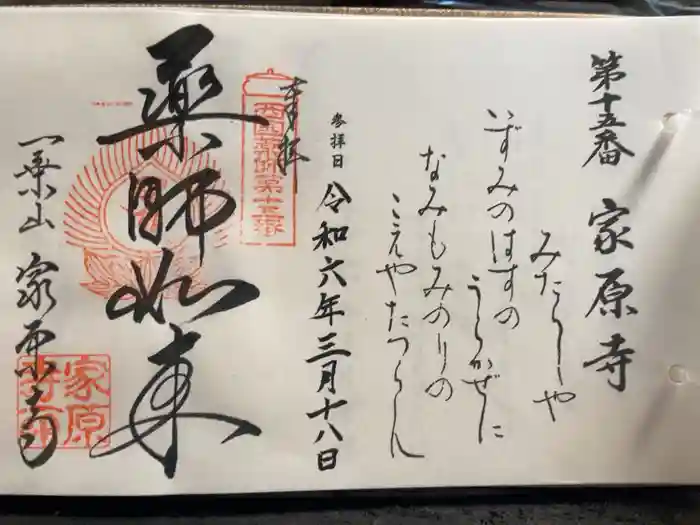 第十五番 家原寺
みたらしや
いずみのはすの
うらかぜに
なみもみのりの
こえやたつらん
参拝日 令和六年三月十八日
奉拝
西国薬師第十五番
薬師如来
一乗山 家原寺
家原寺印